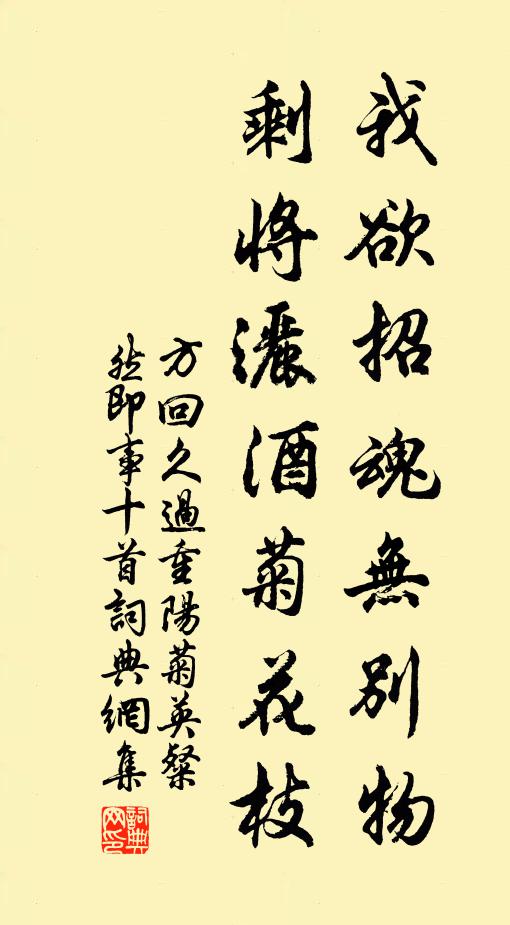 我欲招魂無別物
剩將灑酒菊花枝
方回久過重陽菊英粲
然即事十首詞典網集
詞典
网印